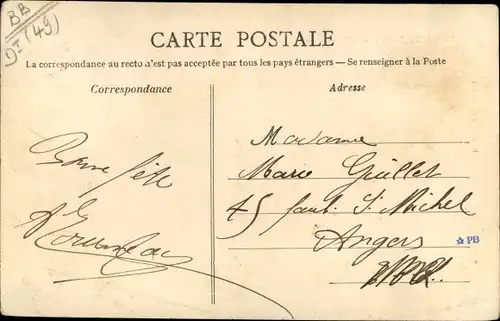 BB
Dt (49)
CARTE POSTALE
La correspondance au recto n'est pas acceptée par tous les pays étrangers — Se renseigner à la Poste
Correspondance
Adresse
Bonne fête
Madame
Marie Guillet
45 faub. St Michel
Angers
PB